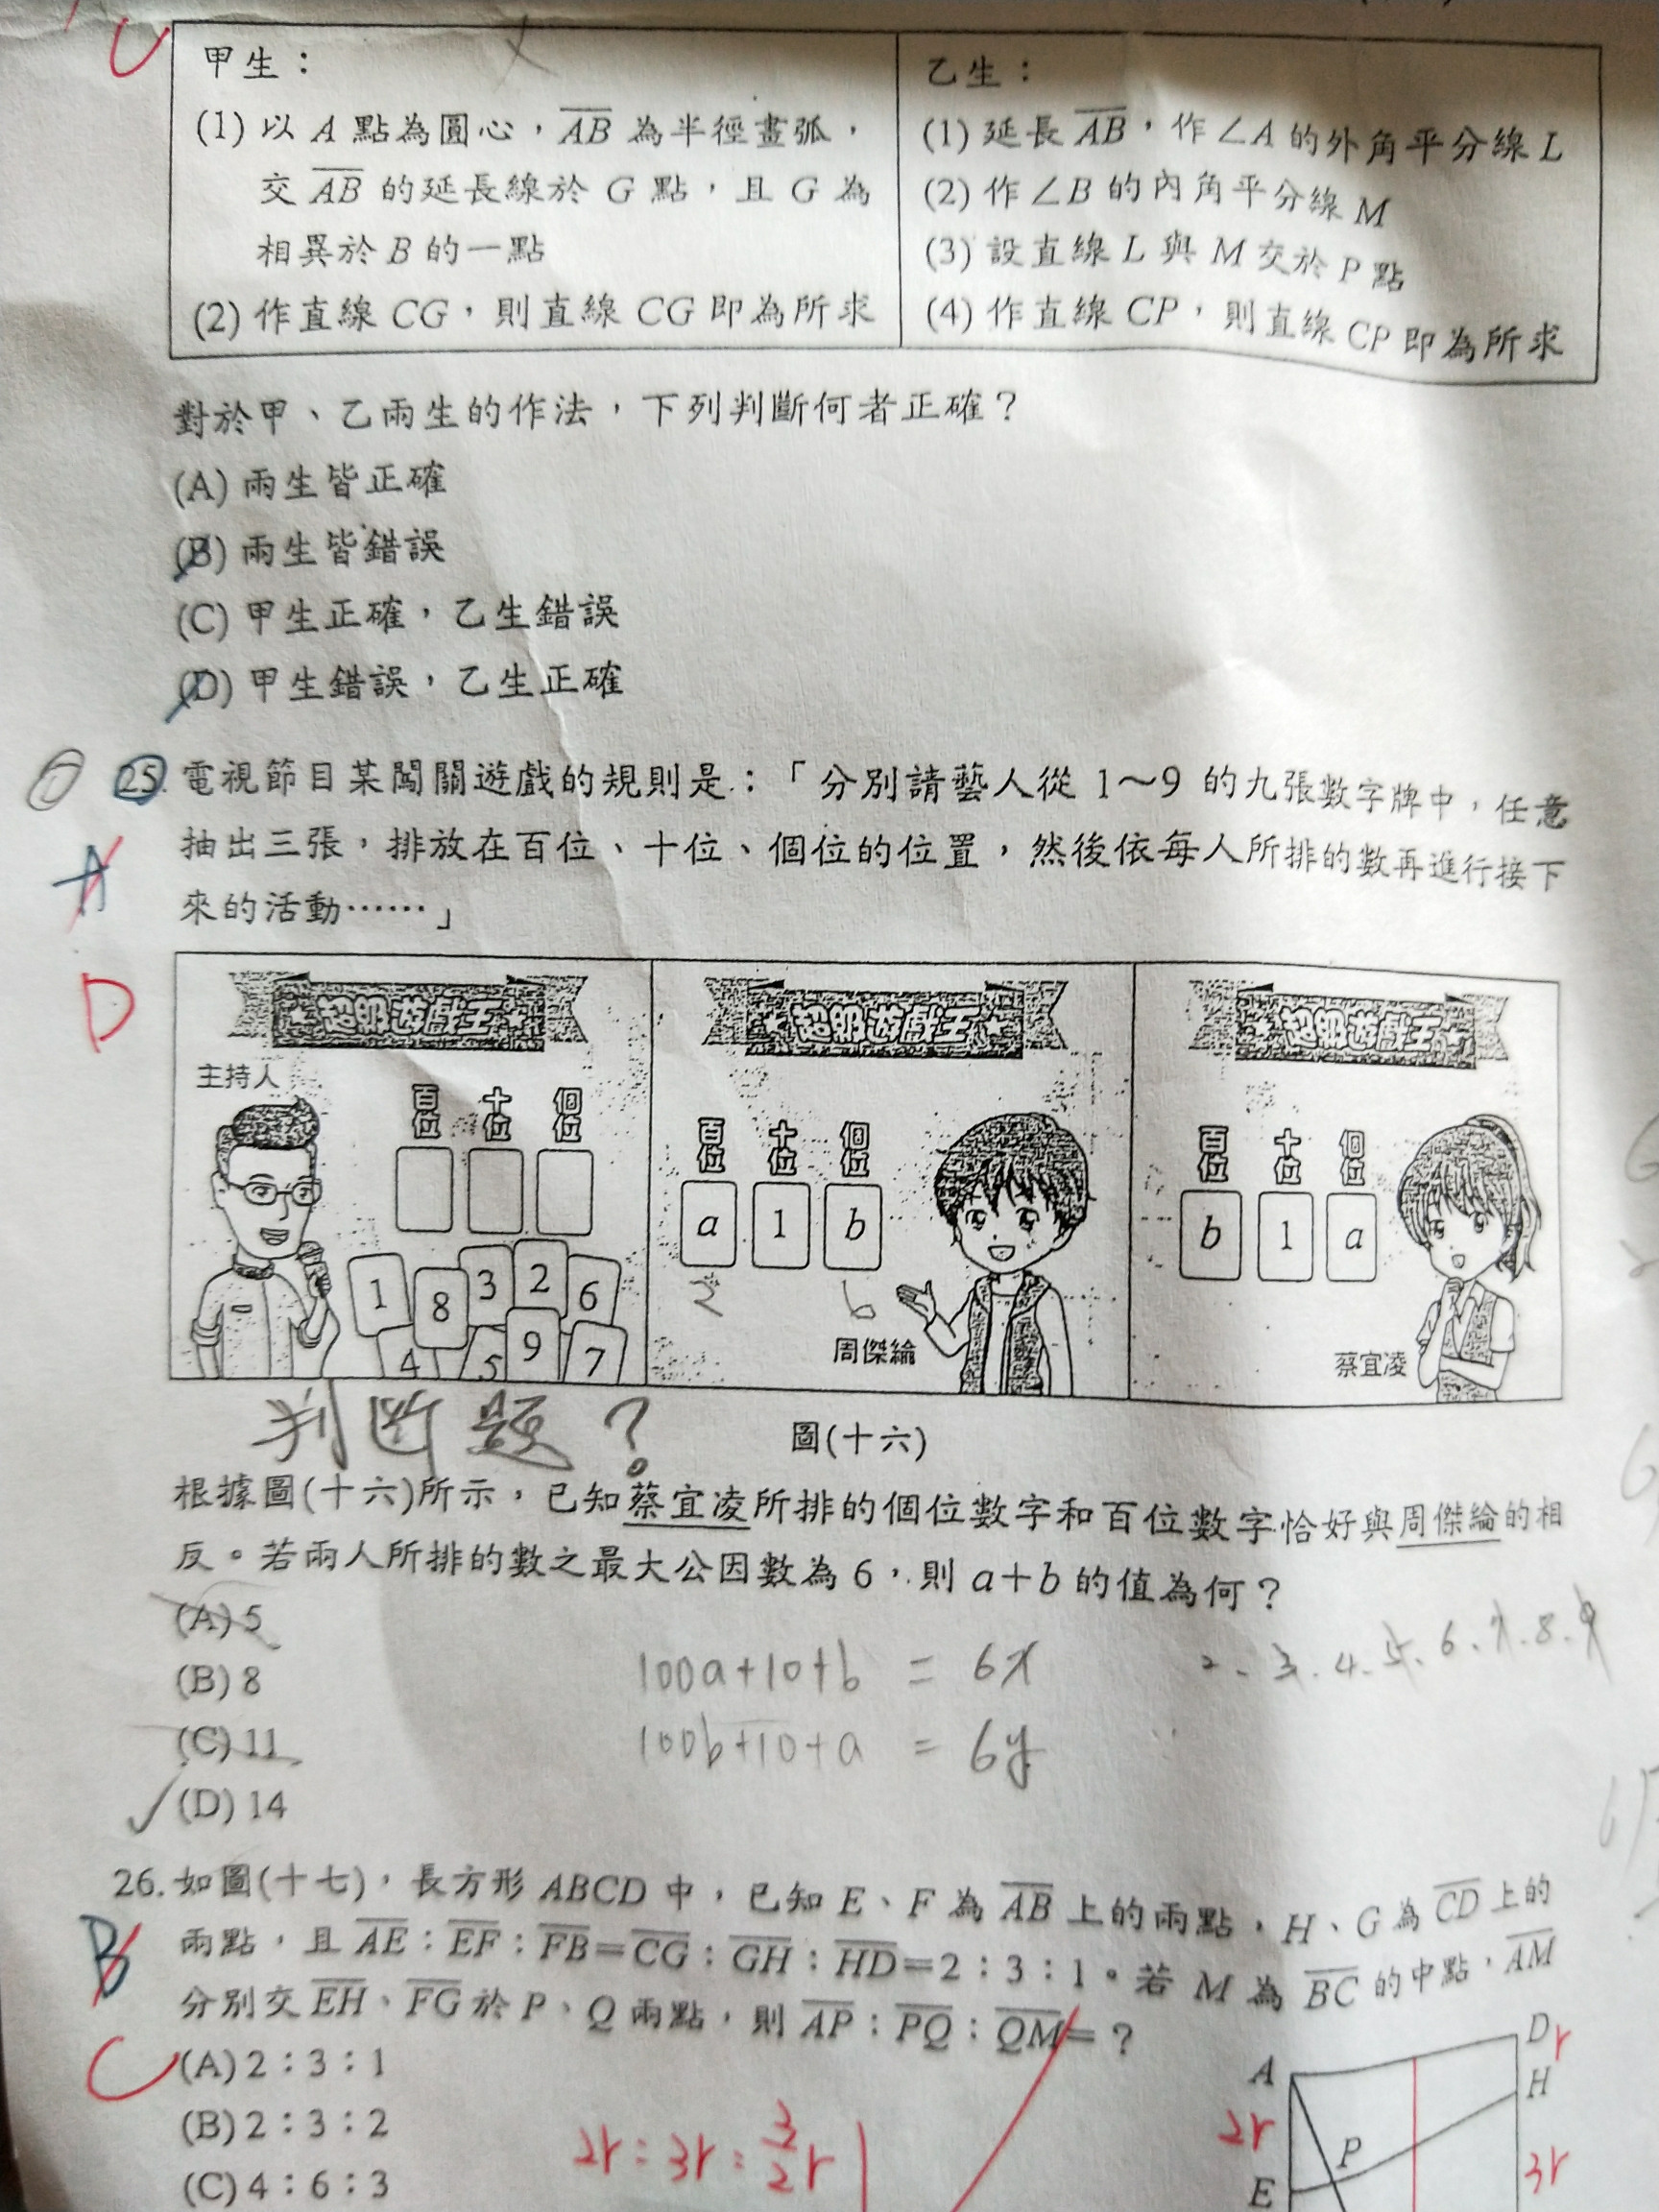 甲生：
(1) 以 A 點為圓心，AB 為半徑畫弧，
交 AB 的延長線於 G 點，且 G 為
相異於 B 的一點
(2) 作直線 CG，則直線 CG 即為所求
乙生：
(1) 延長 AB，作∠A 的外角平分線 L
(2) 作∠B 的內角平分線 M
(3) 設直線 L 與 M 交於 P 點
(4) 作直線 CP，則直線 CP 即為所求
對於甲、乙兩生的作法，下列判斷何者正確？
(A) 兩生皆正確
(B) 兩生皆錯誤
(C) 甲生正確，乙生錯誤
(D) 甲生錯誤，乙生正確
25. 電視節目某闖關遊戲的規則是：「分別請藝人從 1～9 的九張數字牌中，任意
A
抽出三張，排放在百位、十位、個位的位置，然後依每人所排的數再進行接下
來的活動……」
D
超級遊戲王
主持人
百位 十位 個位
1 8 3 2 6
4 5 9 7
超級遊戲王
百位 十位 個位
a 1 b
2 6
周傑綸
超級遊戲王
百位 十位 個位
b 1 a
蔡宜凌
判断題？
圖(十六)
根據圖(十六)所示，已知蔡宜凌所排的個位數字和百位數字恰好與周傑綸的相
反。若兩人所排的數之最大公因數為 6，則 a＋b 的值為何？
(A) 5
(B) 8
(C) 11
(D) 14
100a+10+b = 6x
100b+10+a = 6y
2、3、4、5、6、7、8、9
26. 如圖(十七)，長方形 ABCD 中，已知 E、F 為 AB 上的兩點，H、G 為 CD 上的
B
兩點，且 AE：EF：FB＝CG：GH：HD＝2：3：1。若 M 為 BC 的中點，AM
分別交 EH、FG 於 P、Q 兩點，則 AP：PQ：QM＝？
C
(A) 2：3：1
(B) 2：3：2
(C) 4：6：3
2r：3r：3/2r
A D r
H
2r P 3r
E